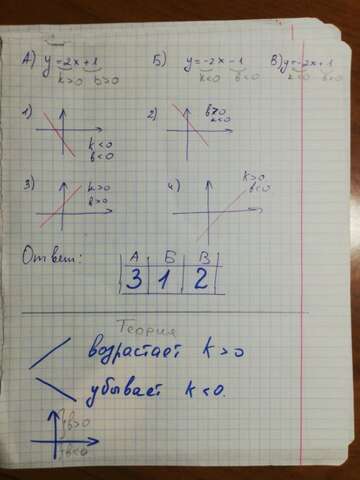 А) y=2x+1 Б) y=-2x-1 В) y=-2x+1
k>0 b>0 k<0 b<0 k<0 b>0
1) k<0 b<0
2) b>0 k<0
3) k>0 b>0
4) k>0 b<0
Ответ:
А Б В
3 1 2
Теория
возрастает k>0
убывает k<0.
b>0
b<0